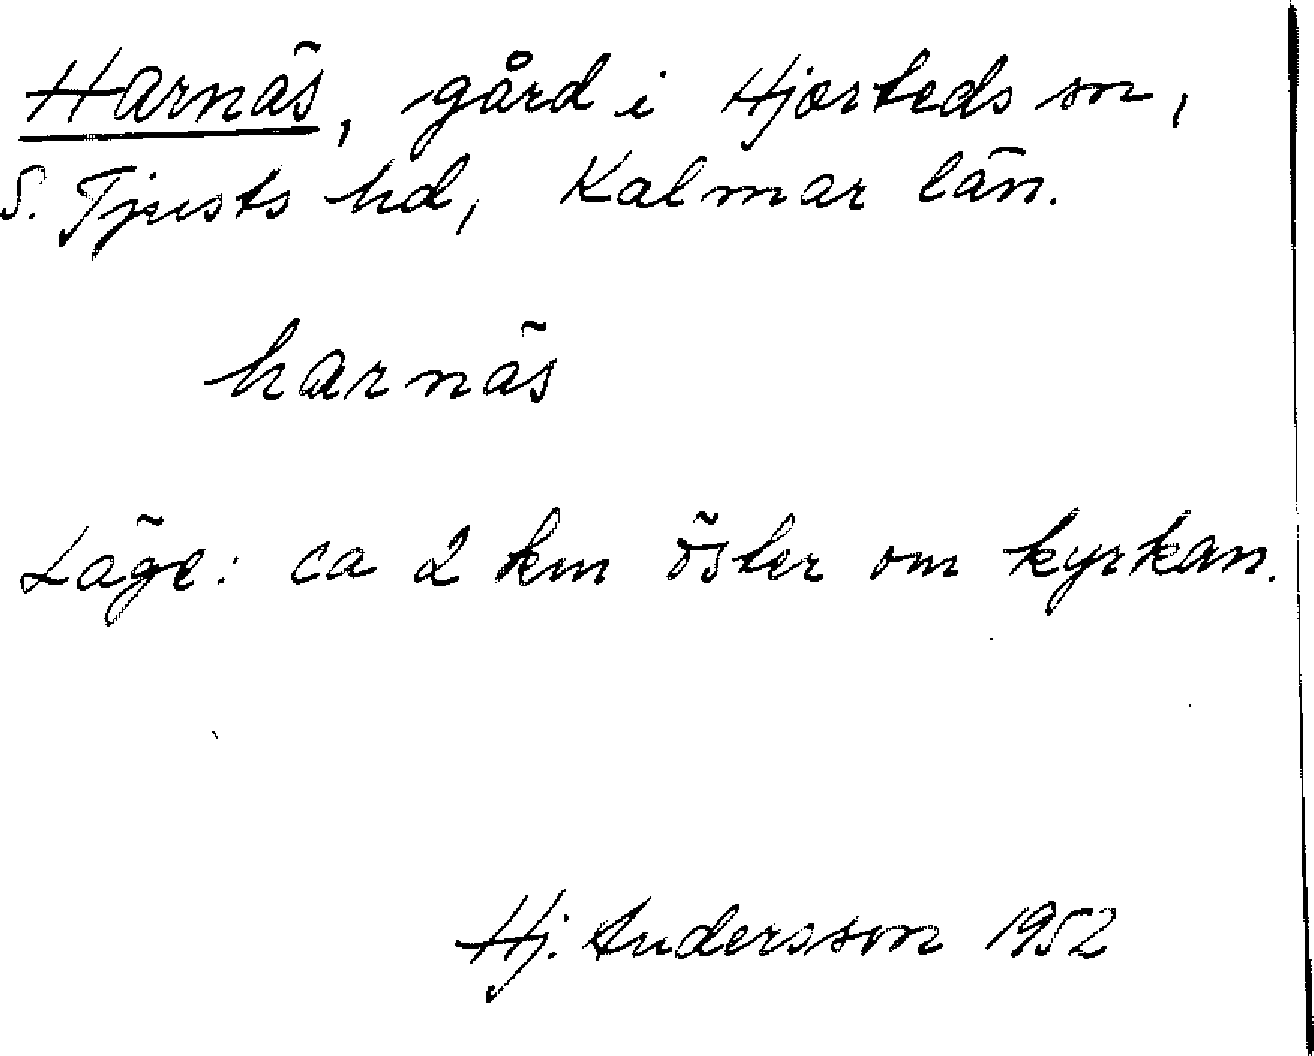 Harnäs, gård i Hjorteds sn,
S. Tjusts hd, Kalmar län.
harnäs
Läge: ca 2 km öster om kyrkan.
Hj. Andersson 1952